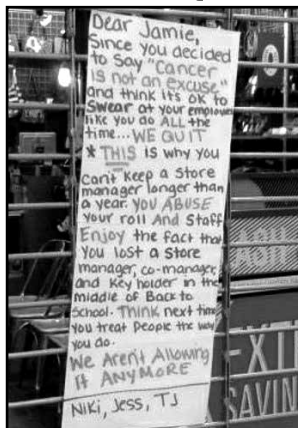 Dear Jamie,
Since you decided
to Say "Cancer
is not an excuse"
and think it's ok to
Swear at your employees
like you do ALL the
time... WE QUIT
* THIS is why you
can't keep a store
manager longer than
a year. you ABUSE
your roll And Staff
Enjoy the fact that
you lost a store
manager, co-manager,
and key holder in the
middle of Back to
School. Think next time
you treat People the way
you do.
We Aren't Allowing
It ANYMORE
Niki, Jess, TJ
EXT
SAVIN